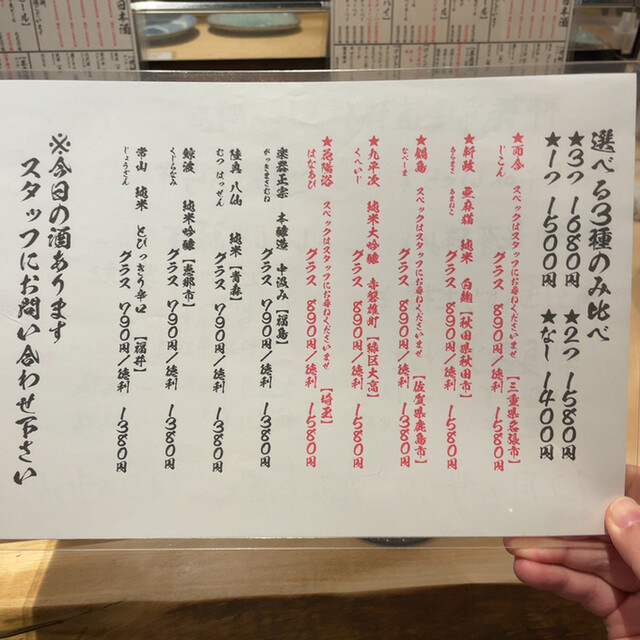 選べる3種のみ比べ
★3つ 1680円 ★2つ 1580円
★1つ 1500円 ★なし 1400円
★而今 スペックはスタッフにお尋ねくださいませ 【三重県名張市】
じこん
グラス 890円/徳利 1580円
★新政 亜麻猫 純米 白麹 【秋田県秋田市】
あらまさ あまねこ
グラス 890円/徳利 1580円
★鍋島 スペックはスタッフにお尋ねくださいませ 【佐賀県鹿島市】
なべしま
グラス 890円/徳利 1580円
★九平次 純米大吟醸 赤磐雄町 【緑区大高】
くへいじ
グラス 890円/徳利 1580円
★花陽浴 スペックはスタッフにお尋ねくださいませ 【埼玉】
はなあび
グラス 890円/徳利 1580円
楽器正宗 本醸造 中汲み 【福島】
がっきまさむね
グラス 790円/徳利 1380円
陸奥 八仙 純米 【青森】
むつ はっせん
グラス 790円/徳利 1380円
鯨波 純米吟醸 【恵那市】
くじらなみ
グラス 790円/徳利 1380円
常山 純米 とびっきり辛口 【福井】
じょうざん
グラス 790円/徳利 1380円
※今日の酒あります
スタッフにお問い合わせ下さい
日本酒